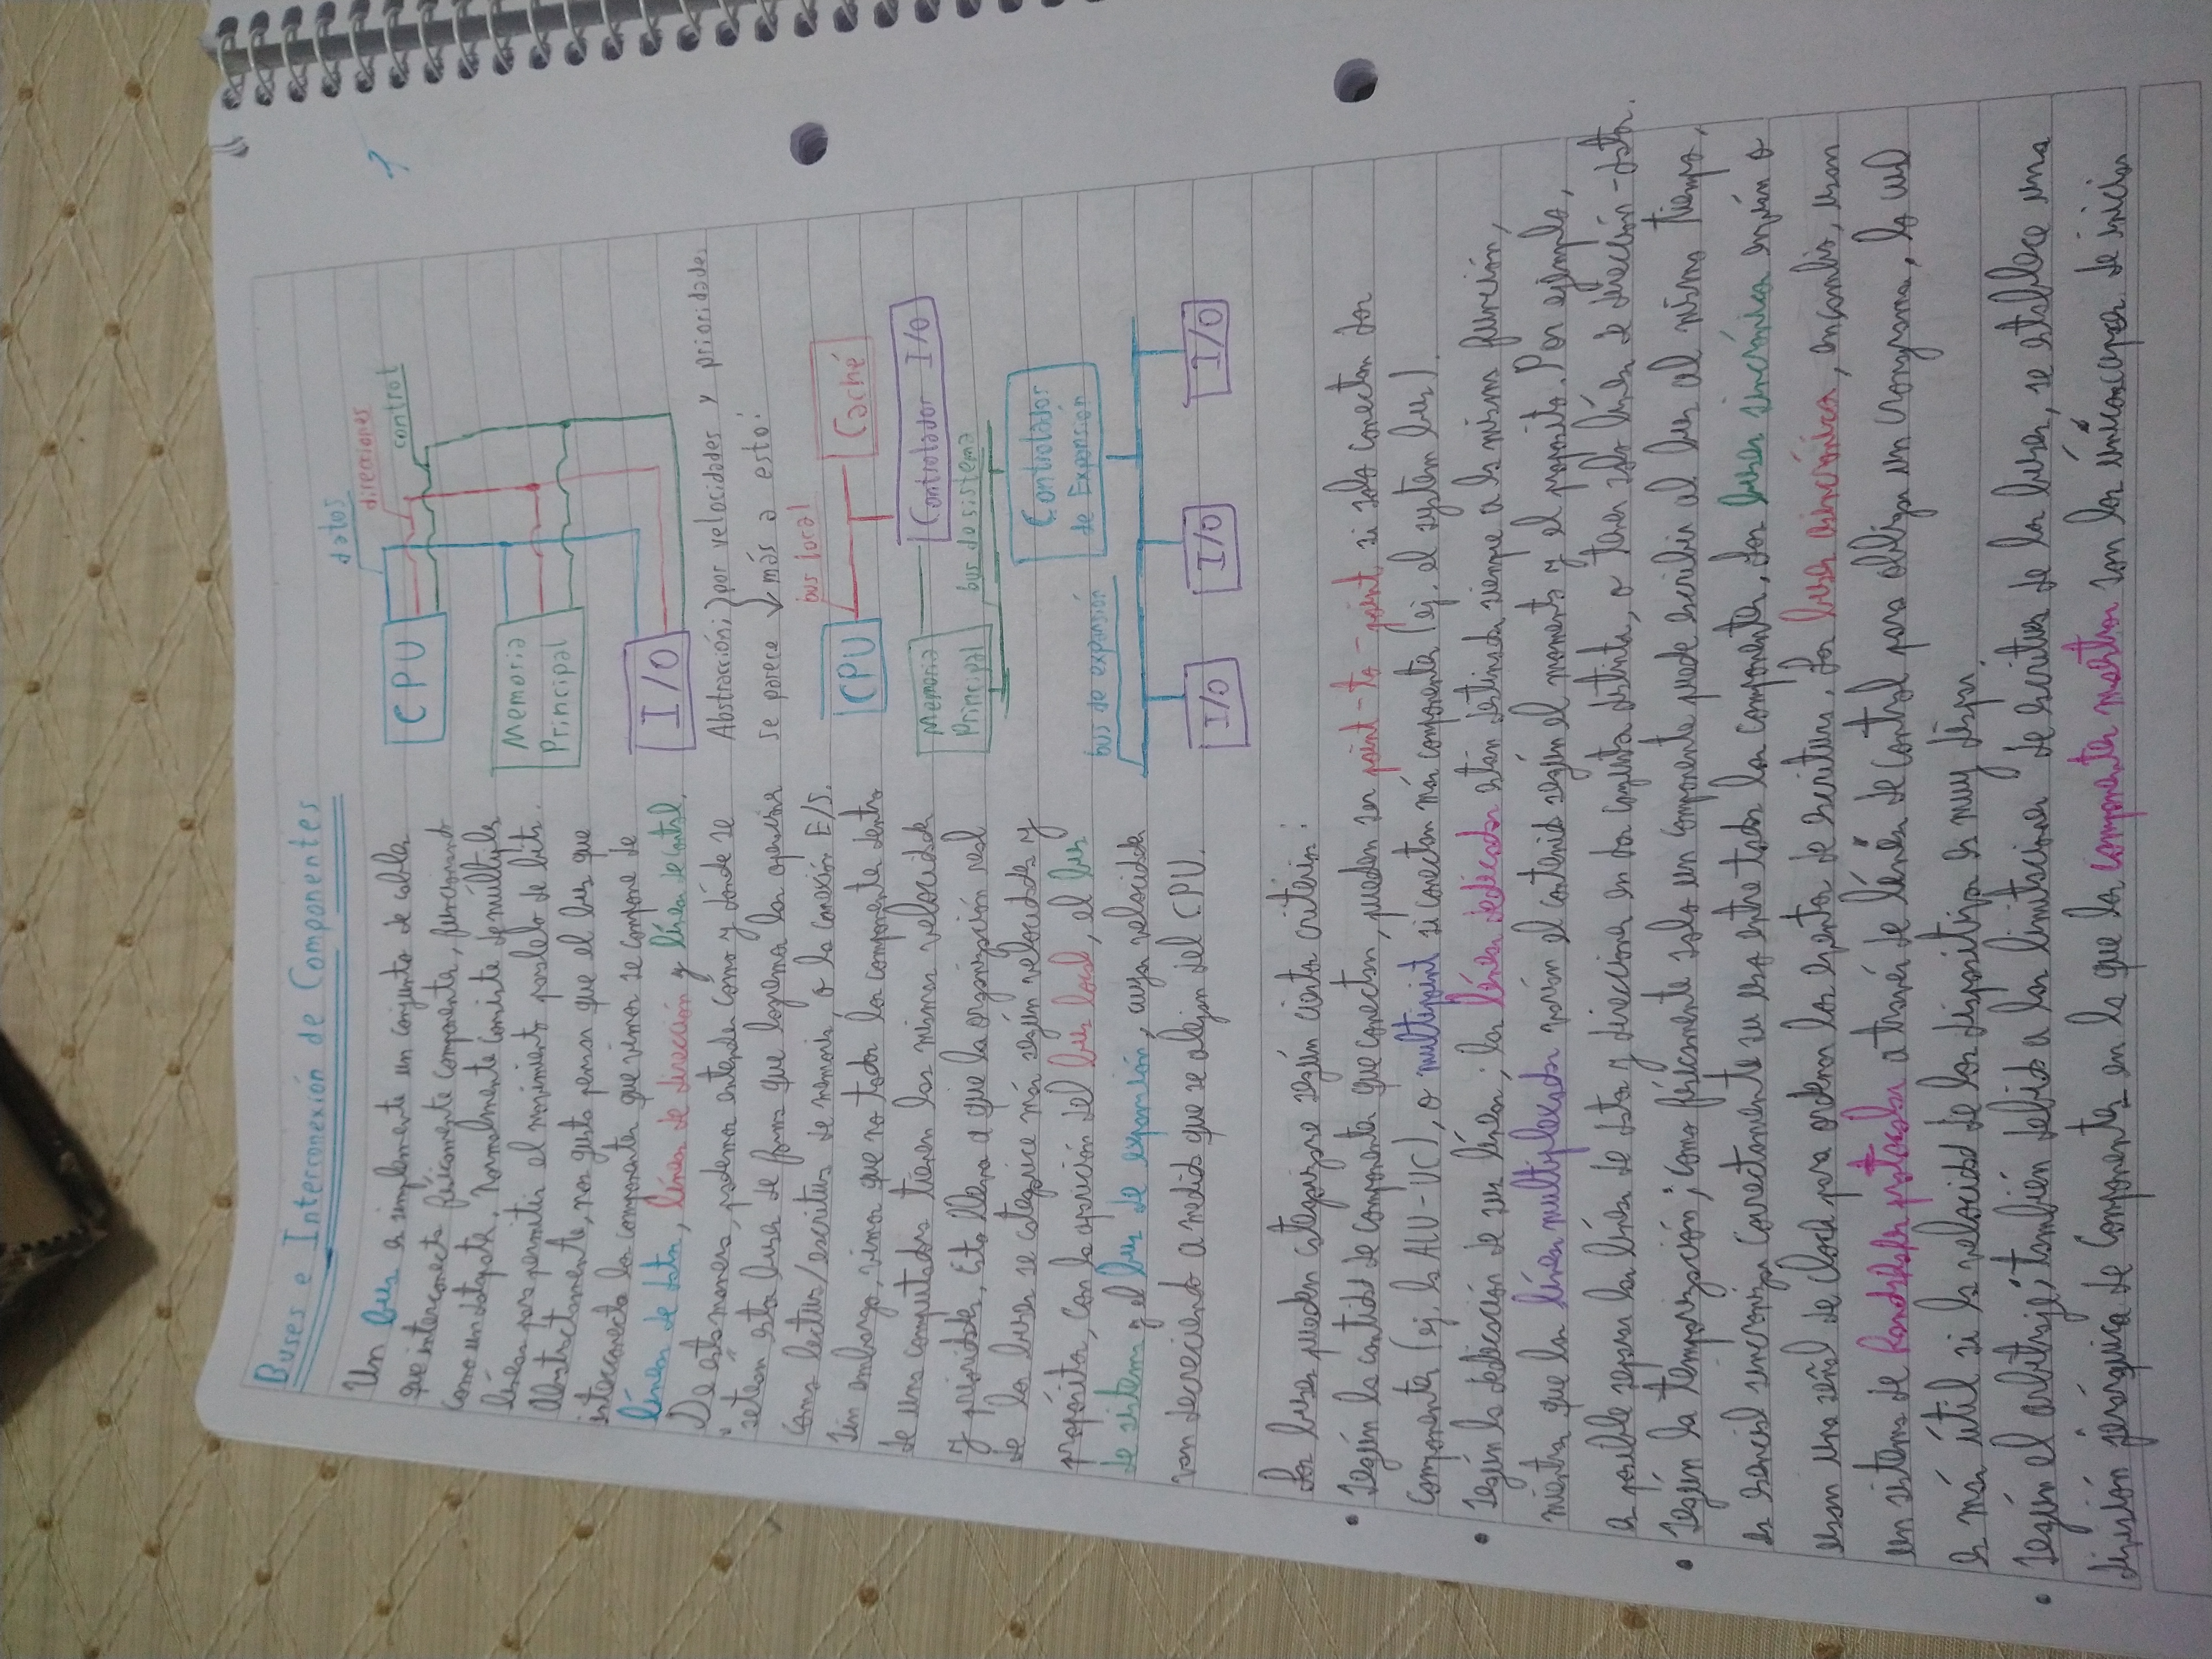 Buses e Interconexión de Componentes
Un bus es simplemente un conjunto de cables
que interconecta físicamente componentes, funcionando
como un datapath. Normalmente consiste de múltiples
líneas para permitir el movimiento paralelo de bits.
Abstractamente, nos gusta pensar que el bus que
interconecta los componentes que vimos se compone de
líneas de datos, líneas de dirección y líneas de control.
De esta manera, podemos entender cómo y dónde se
"setean" estos buses de forma que logremos las operaciones
como lectura/escritura de memoria, o la conexión E/S.
Sin embargo, vimos que no todos los componentes dentro
de una computadora tienen las mismas velocidades
y prioridades. Esto lleva a que la organización real
de los buses se categorice más según velocidades y
propósitos, con la aparición del bus local, el bus
de sistema y el bus de expansión, cuyas velocidades
van decreciendo a medida que se alejan del CPU.
datos
direcciones
control
CPU
Memoria
Principal
I/O
Abstracción; por velocidades y prioridades
se parece más a esto:
bus local
CPU
Caché
Memoria
Principal
Controlador I/O
bus de sistema
Controlador
de Expansión
bus de expansión
I/O
I/O
I/O
Los buses pueden categorizarse según ciertos criterios:
• Según la cantidad de componentes que conectan, pueden ser point-to-point si solo conectan dos
componentes (ej. la ALU-UC), o multipoint si conectan más componentes (ej. el system bus).
• Según la dedicación de sus líneas; las líneas dedicadas están destinadas siempre a la misma función,
mientras que las líneas multiplexadas varían el contenido según el momento y el proposito. Por ejemplo,
es posible separar las líneas de datos y direcciones en dos conjuntos distintos, o tener solo líneas de dirección-datos.
• Según la temporización; como físicamente solo un componente puede escribir al bus al mismo tiempo,
es esencial sincronizar correctamente su uso entre todos los componentes. Los buses sincrónicos envían o
usan una señal de clock para ordenar los eventos de escritura. Los buses asincrónicos, en cambio, usan
un sistema de handshake protocolos a través de líneas de control para obligar un cronograma, lo cual
es más útil si la velocidad de los dispositivos es muy dispar.
• Según el arbitraje; también debido a las limitaciones de escritura de los buses, se establece una
división jerárquica de componentes en la que los componentes maestros son los únicos capaces de iniciar